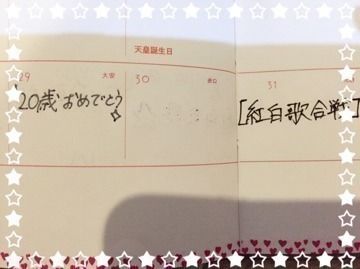 天皇誕生日
29 大安
30 赤口
31
20歳おめでとう
[紅白歌合戦]